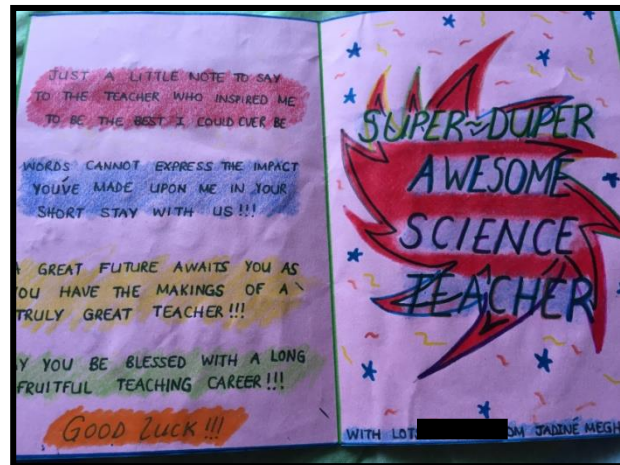 JUST A LITTLE NOTE TO SAY
TO THE TEACHER WHO INSPIRED ME
TO BE THE BEST I COULD EVER BE
WORDS CANNOT EXPRESS THE IMPACT
YOU'VE MADE UPON ME IN YOUR
SHORT STAY WITH US!!!
A GREAT FUTURE AWAITS YOU AS
YOU HAVE THE MAKINGS OF A
TRULY GREAT TEACHER!!!
YOU BE BLESSED WITH A LONG
FRUITFUL TEACHING CAREER!!!
GOOD LUCK!!!
SUPER~DUPER
AWESOME
SCIENCE
TEACHER
WITH LOTS JADINE MEGH